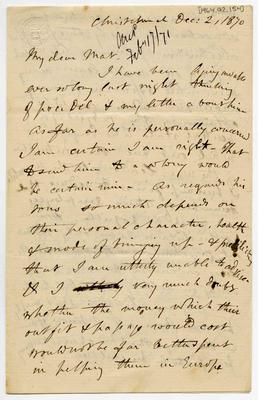 [1964.92.154]
Christchurch Dec: 2, 1870
Feb 17/71
My dear Mat.
I have been lying awake
ever so long last night thinking
of poor Deb & my little a bout him
as far as he is personally concerned
I am certain I am right - that
to send him to a colony would
be certain ruin - As regards his
sons so much depends on
their personal character, health
& mode of bringing up -
that I am utterly unable to advise
& I very much doubt
whether the money which their
outfit & passage would cost
would not be far better spent
in helping them in Europe